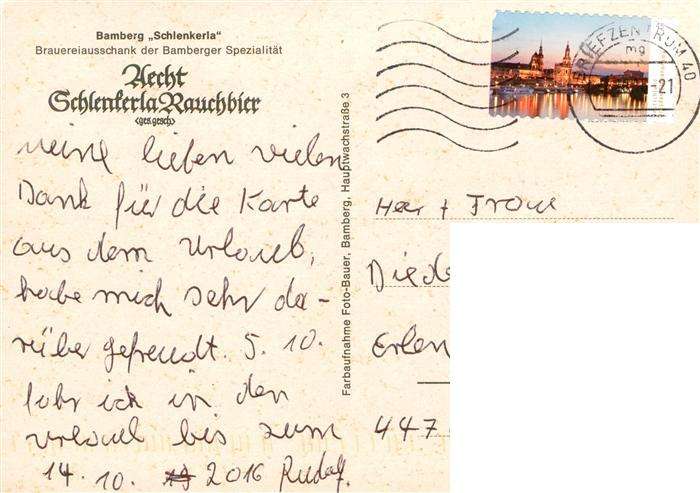 Bamberg „Schlenkerla“
Brauereiausschank der Bamberger Spezialität
Aecht
Schlenkerla Rauchbier
<ges. gesch.>
meine lieben vielen
Dank für die Karte
aus dem Urlaub,
habe mich sehr da-
rüber gefreudt. 5. 10.
fahr ich in den
Urlaub bis zum
14. 10. 2016 Rudolf.
Farbaufnahme Foto-Bauer, Bamberg, Hauptwachstraße 3
BRIEFZENTRUM 40
mg
21
Herr + Frau
Diede
Erlen
447